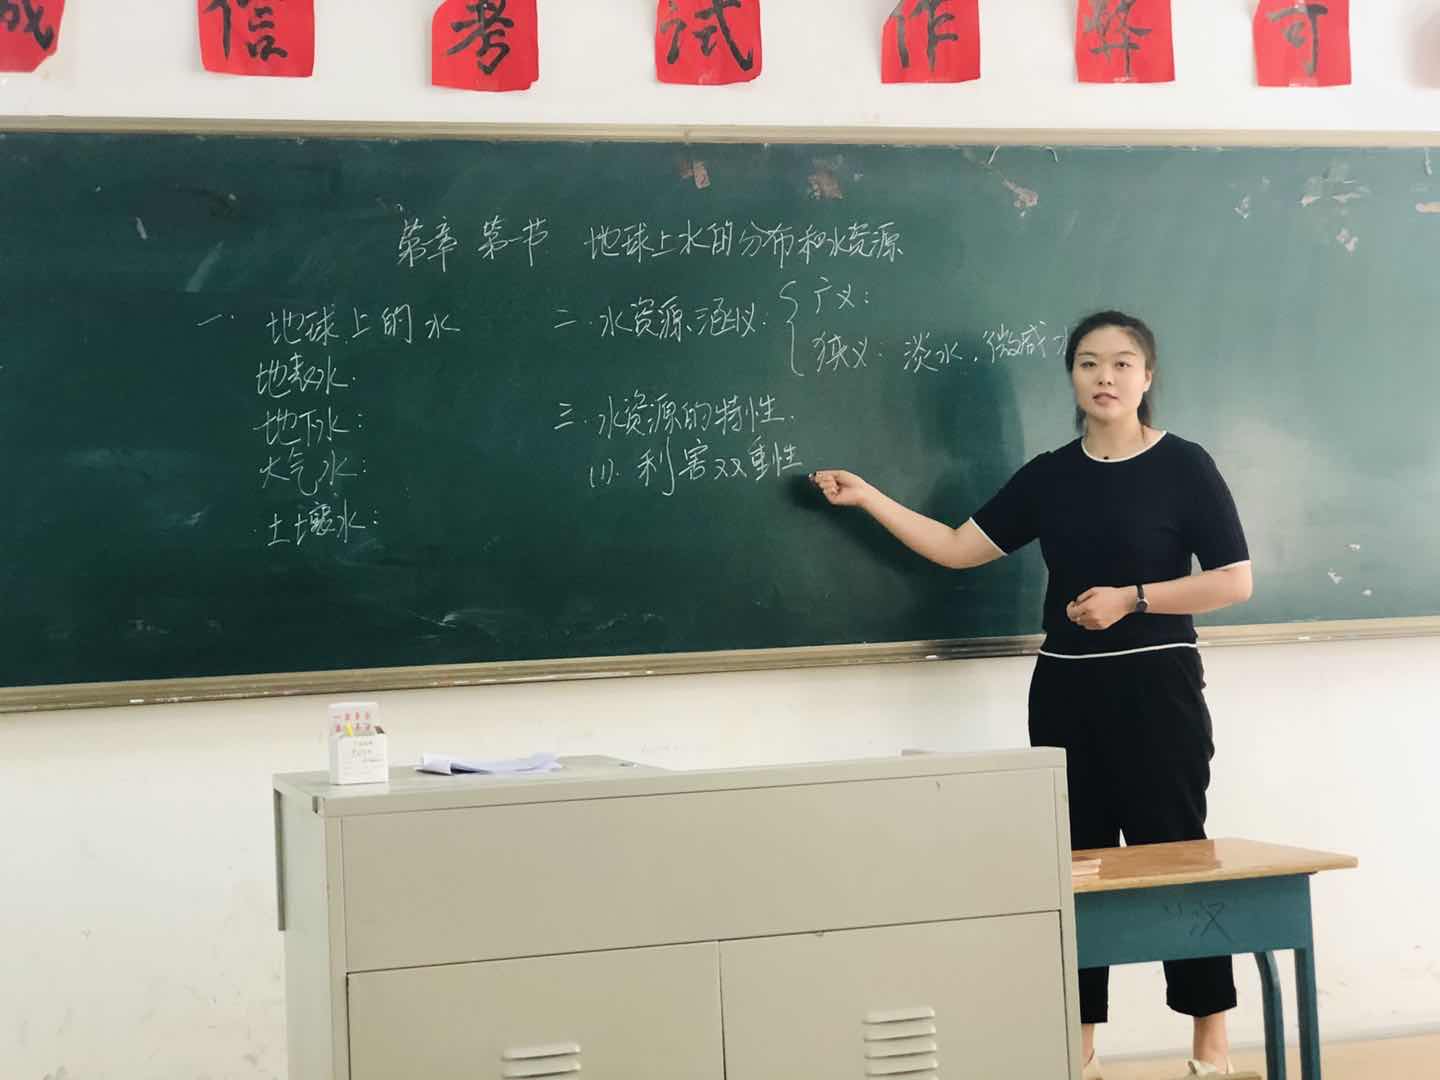 诚信考试作弊可
第章 第一节 地球上水的分布和水资源
一. 地球上的水
地表水.
地下水:
大气水:
土壤水:
二. 水资源涵义:
广义:
狭义: 淡水, 微咸水
三. 水资源的特性.
(1). 利害双重性
汉